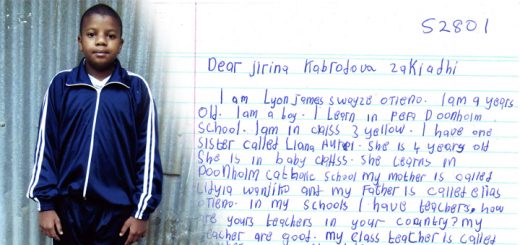 S2801
Dear Jirina Kabrodova zakladhi
I am Lyon James Swayze otieno. I am 9 years
old. I am a boy. I learn in PEFA Doonholm
school. I am in class 3 yellow. I have one
sister called Liana . She is 4 years old
She is in baby class. She learns in
Doonholm catholic school my mother is called
Lidyia wanjiko and my Father is called elias
otieno. in my schools I have teachers, how
are yours teachers in your country? my
teacher are good. my class teacher is called